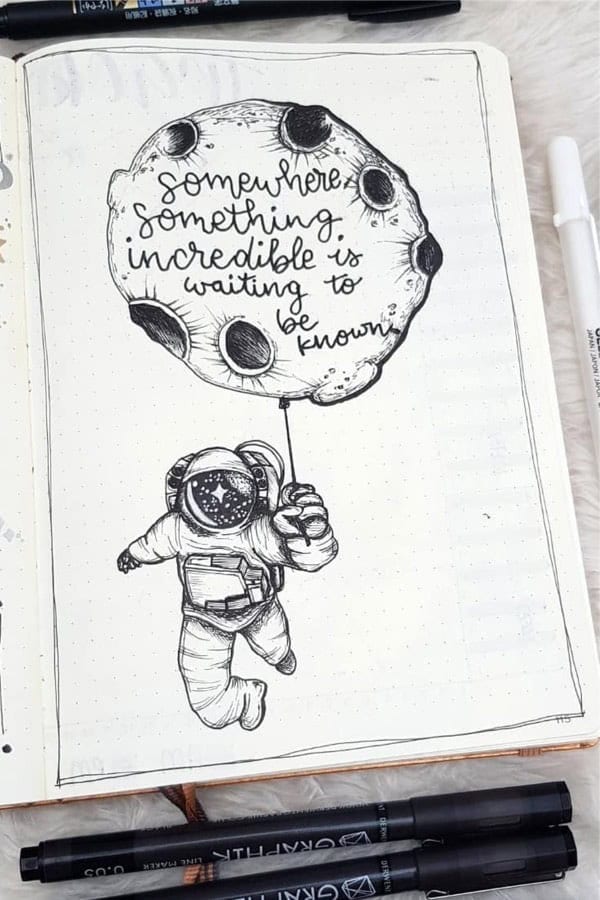 somewhere,
something
incredible is
waiting to
be
known.
115
DERWENT
GRAPHIK
LINE MAKER
0.05
GRAPHIK
DERWENT